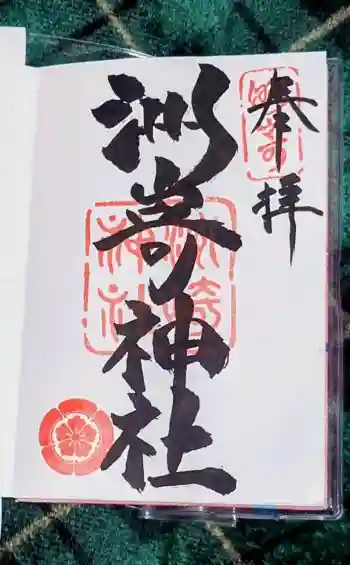 奉拝
洲嵜神社
洲崎
神社